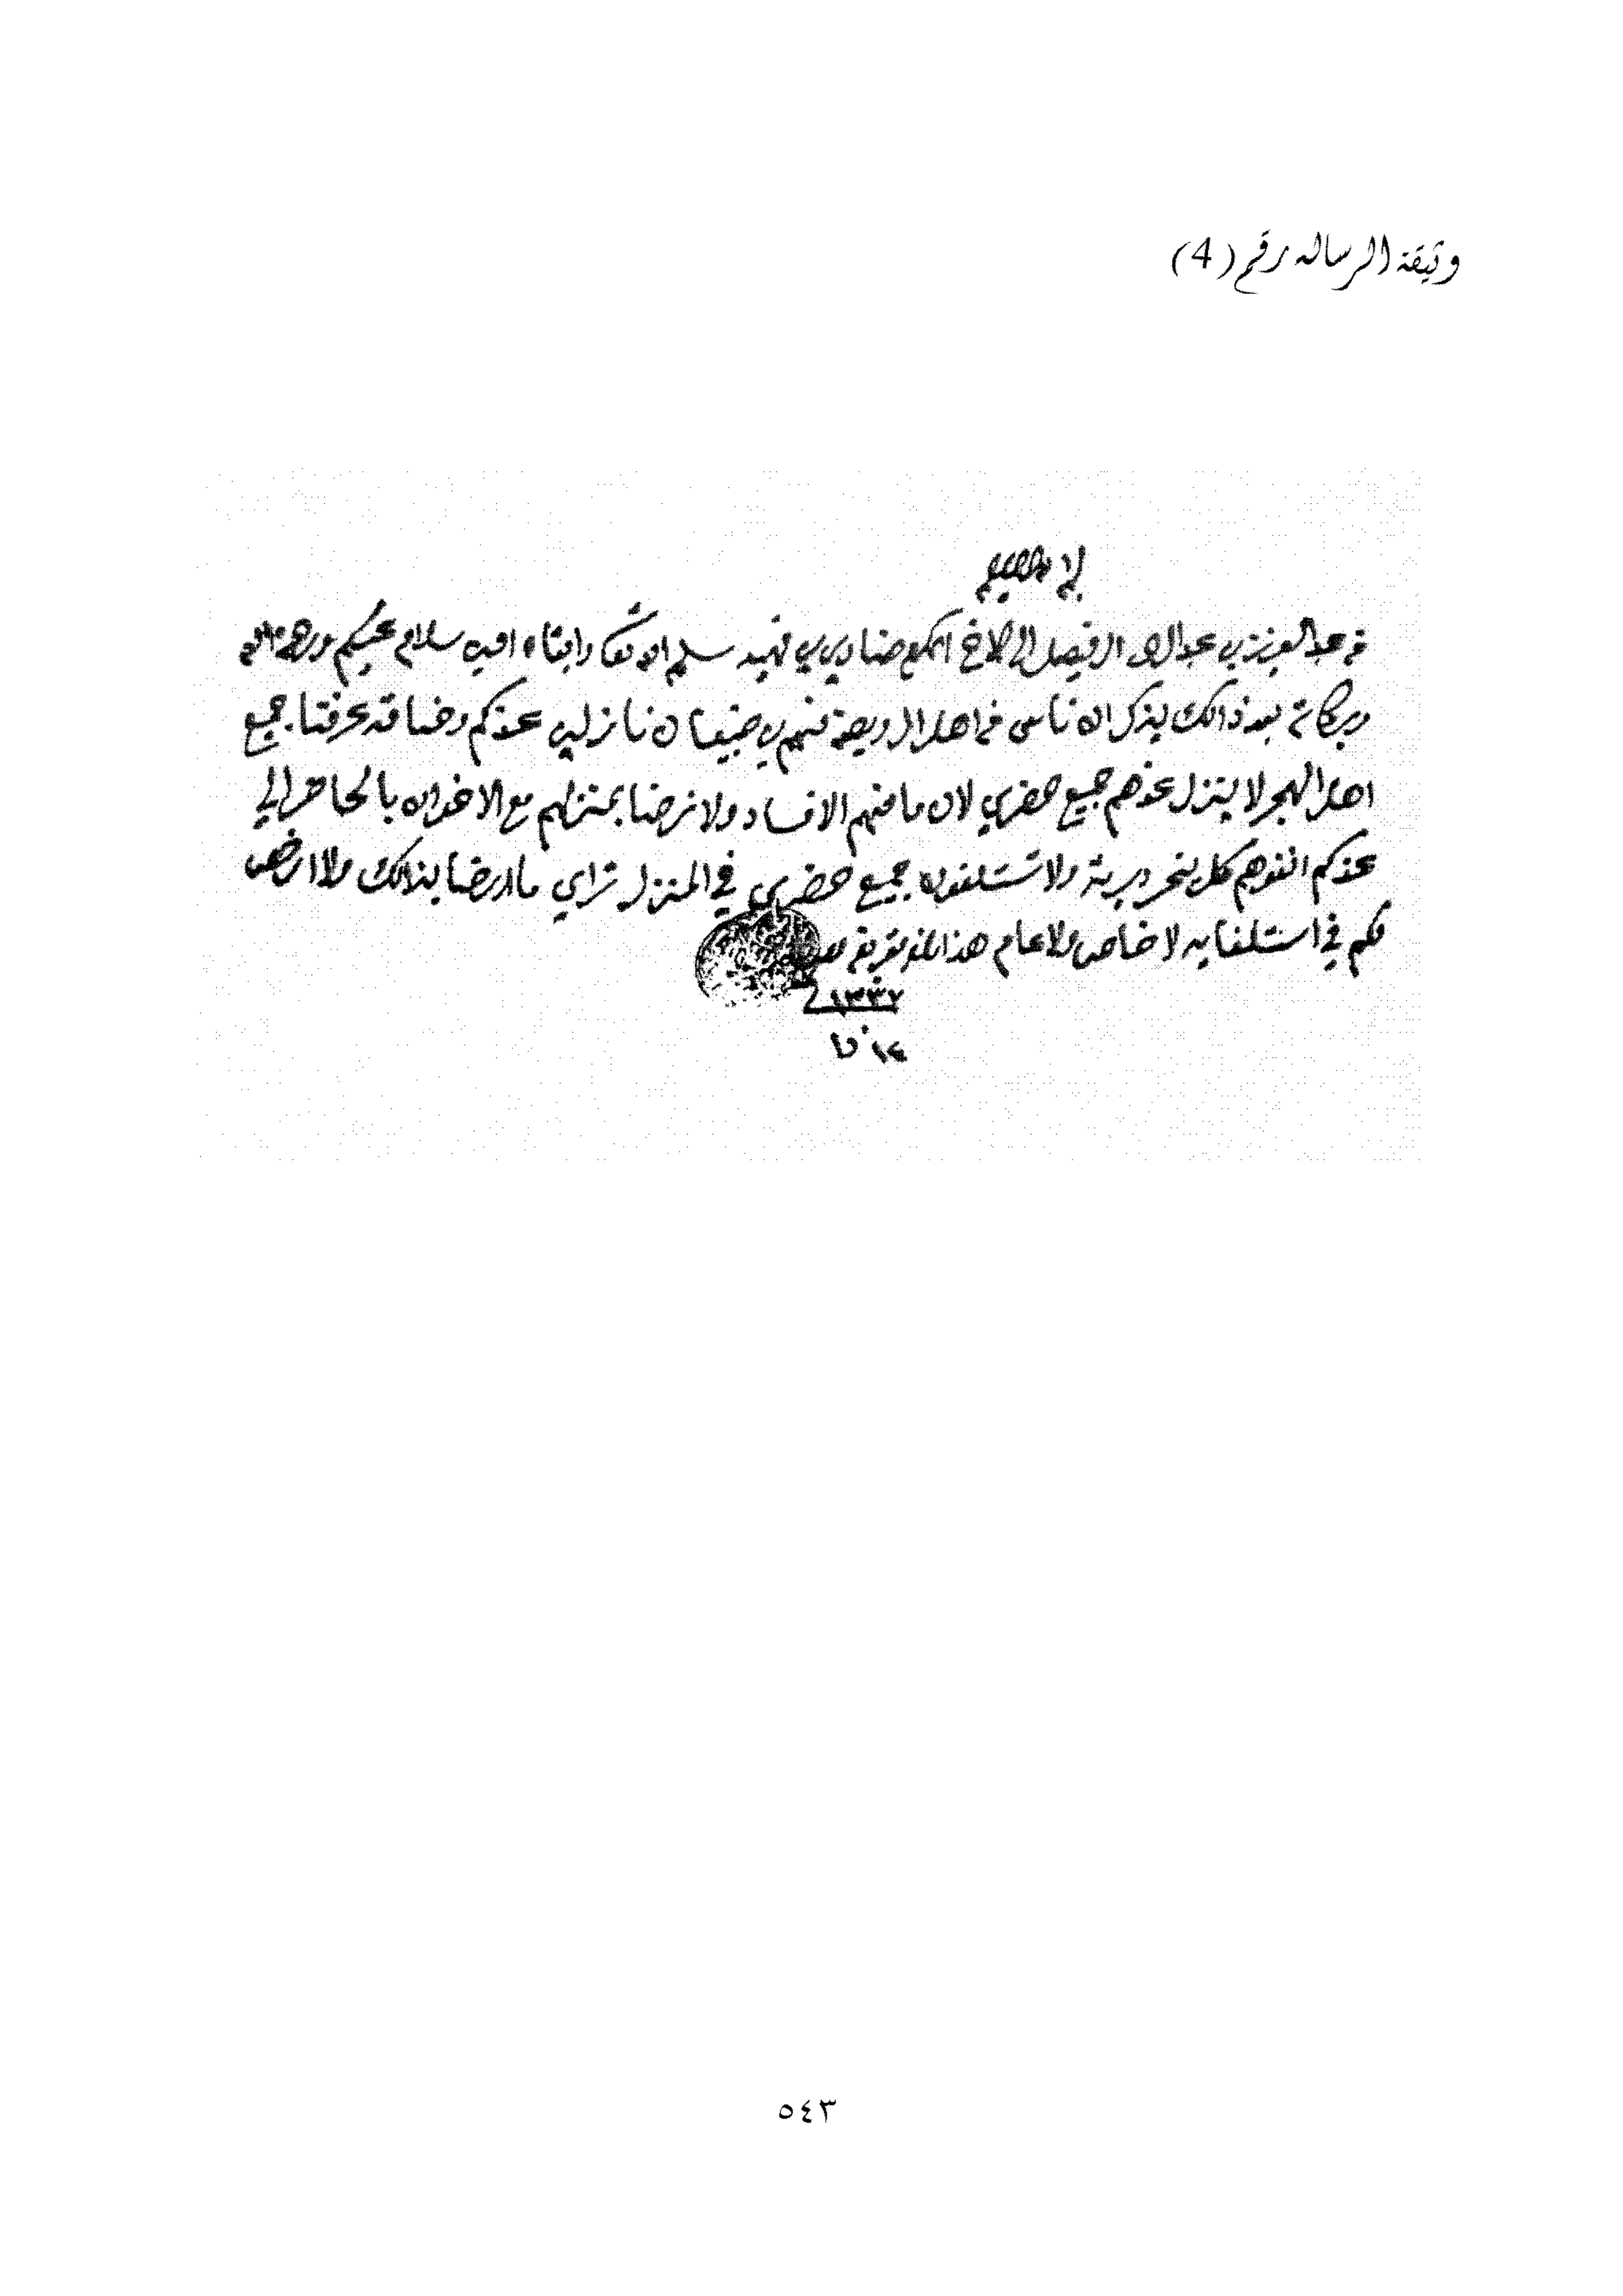 وثيقة الرساله رقم (4)
من عبدالعزيز بن عبدالرحمن الفيصل الى الاخ المكرم ضاوي بن فهيد سلمه الله تعالى وابقاه امين سلام عليكم ورحمة الله
وبركاته بعد ذالك يذكر ان ناس من اهل الرويضة منهم بن ضبيعان نازلين عندكم وحنا قد عرفنا جميع
اهل الهجر لا ينزل عندهم جميع حضري لان ما منهم الا فساد ولا نرضا بمنزلهم مع الاخوان بالحاضر الي
عندكم انفوهم كل ينحر ديرته ولا تستلفون جميع حضري في المنزل تراي ما ارضا بذالك ولا ارخص
لكم في استلفايه لا خاص ولا عام هذا مالزم تعريفه والسلام
١٣٣٧
٥٤٣